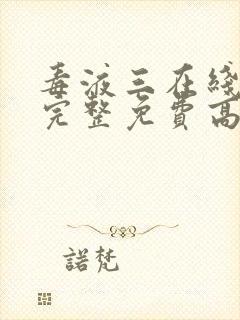 毒液三在綫
完整免費高
諾梵